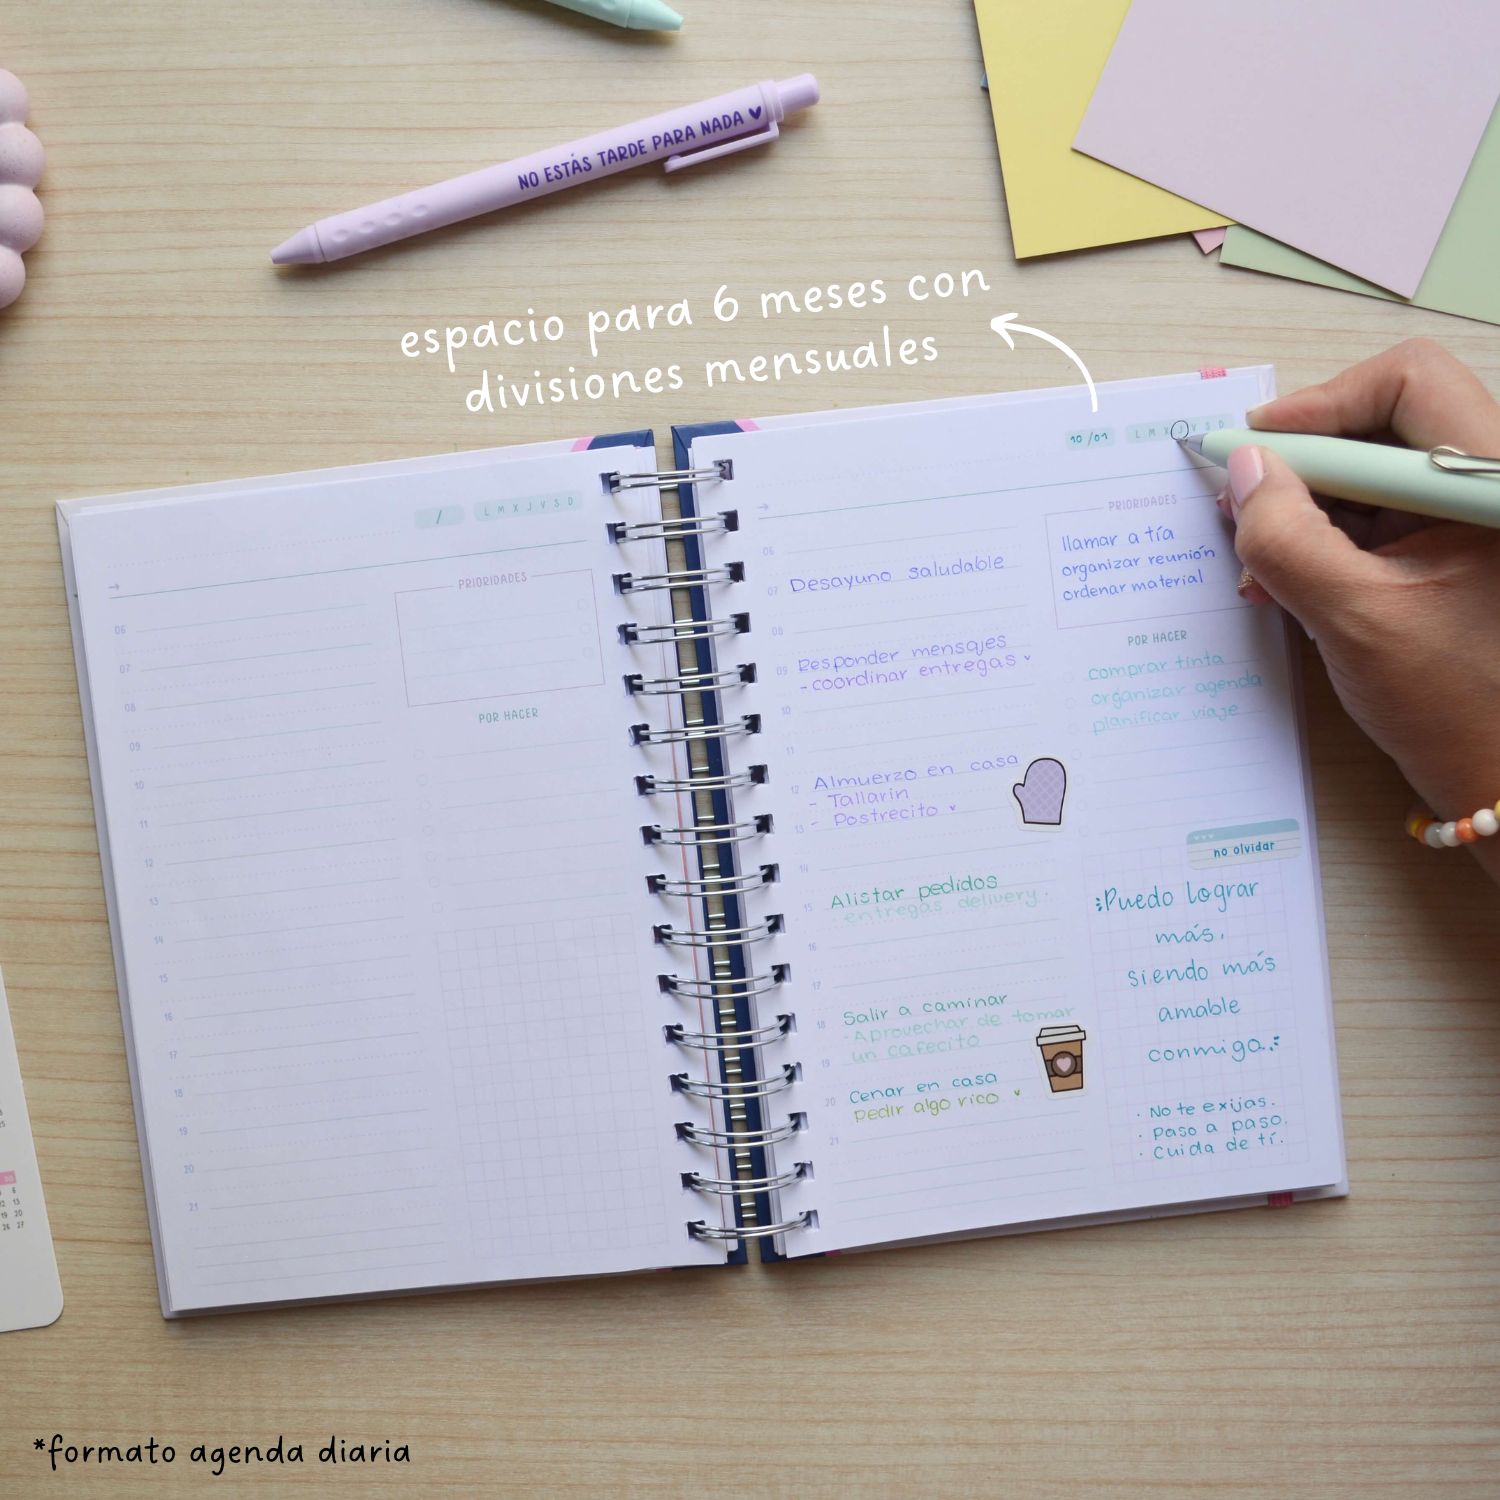 NO ESTÁS TARDE PARA NADA
espacio para 6 meses con
divisiones mensuales
/
L M X J V S D
PRIORIDADES
06
07
08
09
10
11
12
13
14
15
16
17
18
19
20
21
POR HACER
10/01
L M X J V S D
06
07 Desayuno saludable
08
09 Responder mensajes
- coordinar entregas
10
11
12 Almuerzo en casa
- Tallarin
13 - Postrecito
14
15 Alistar pedidos
- entregas delivery.
16
17
18 Salir a caminar
- Aprovechar de tomar
19 un cafecito
20 Cenar en casa
Pedir algo rico
21
PRIORIDADES
llamar a tía
organizar reunión
ordenar material
POR HACER
comprar tinta
organizar agenda
planificar viaje
no olvidar
Puedo lograr
más,
siendo más
amable
conmigo.
· No te exijas.
· Paso a paso.
· Cuida de tí.
*formato agenda diaria